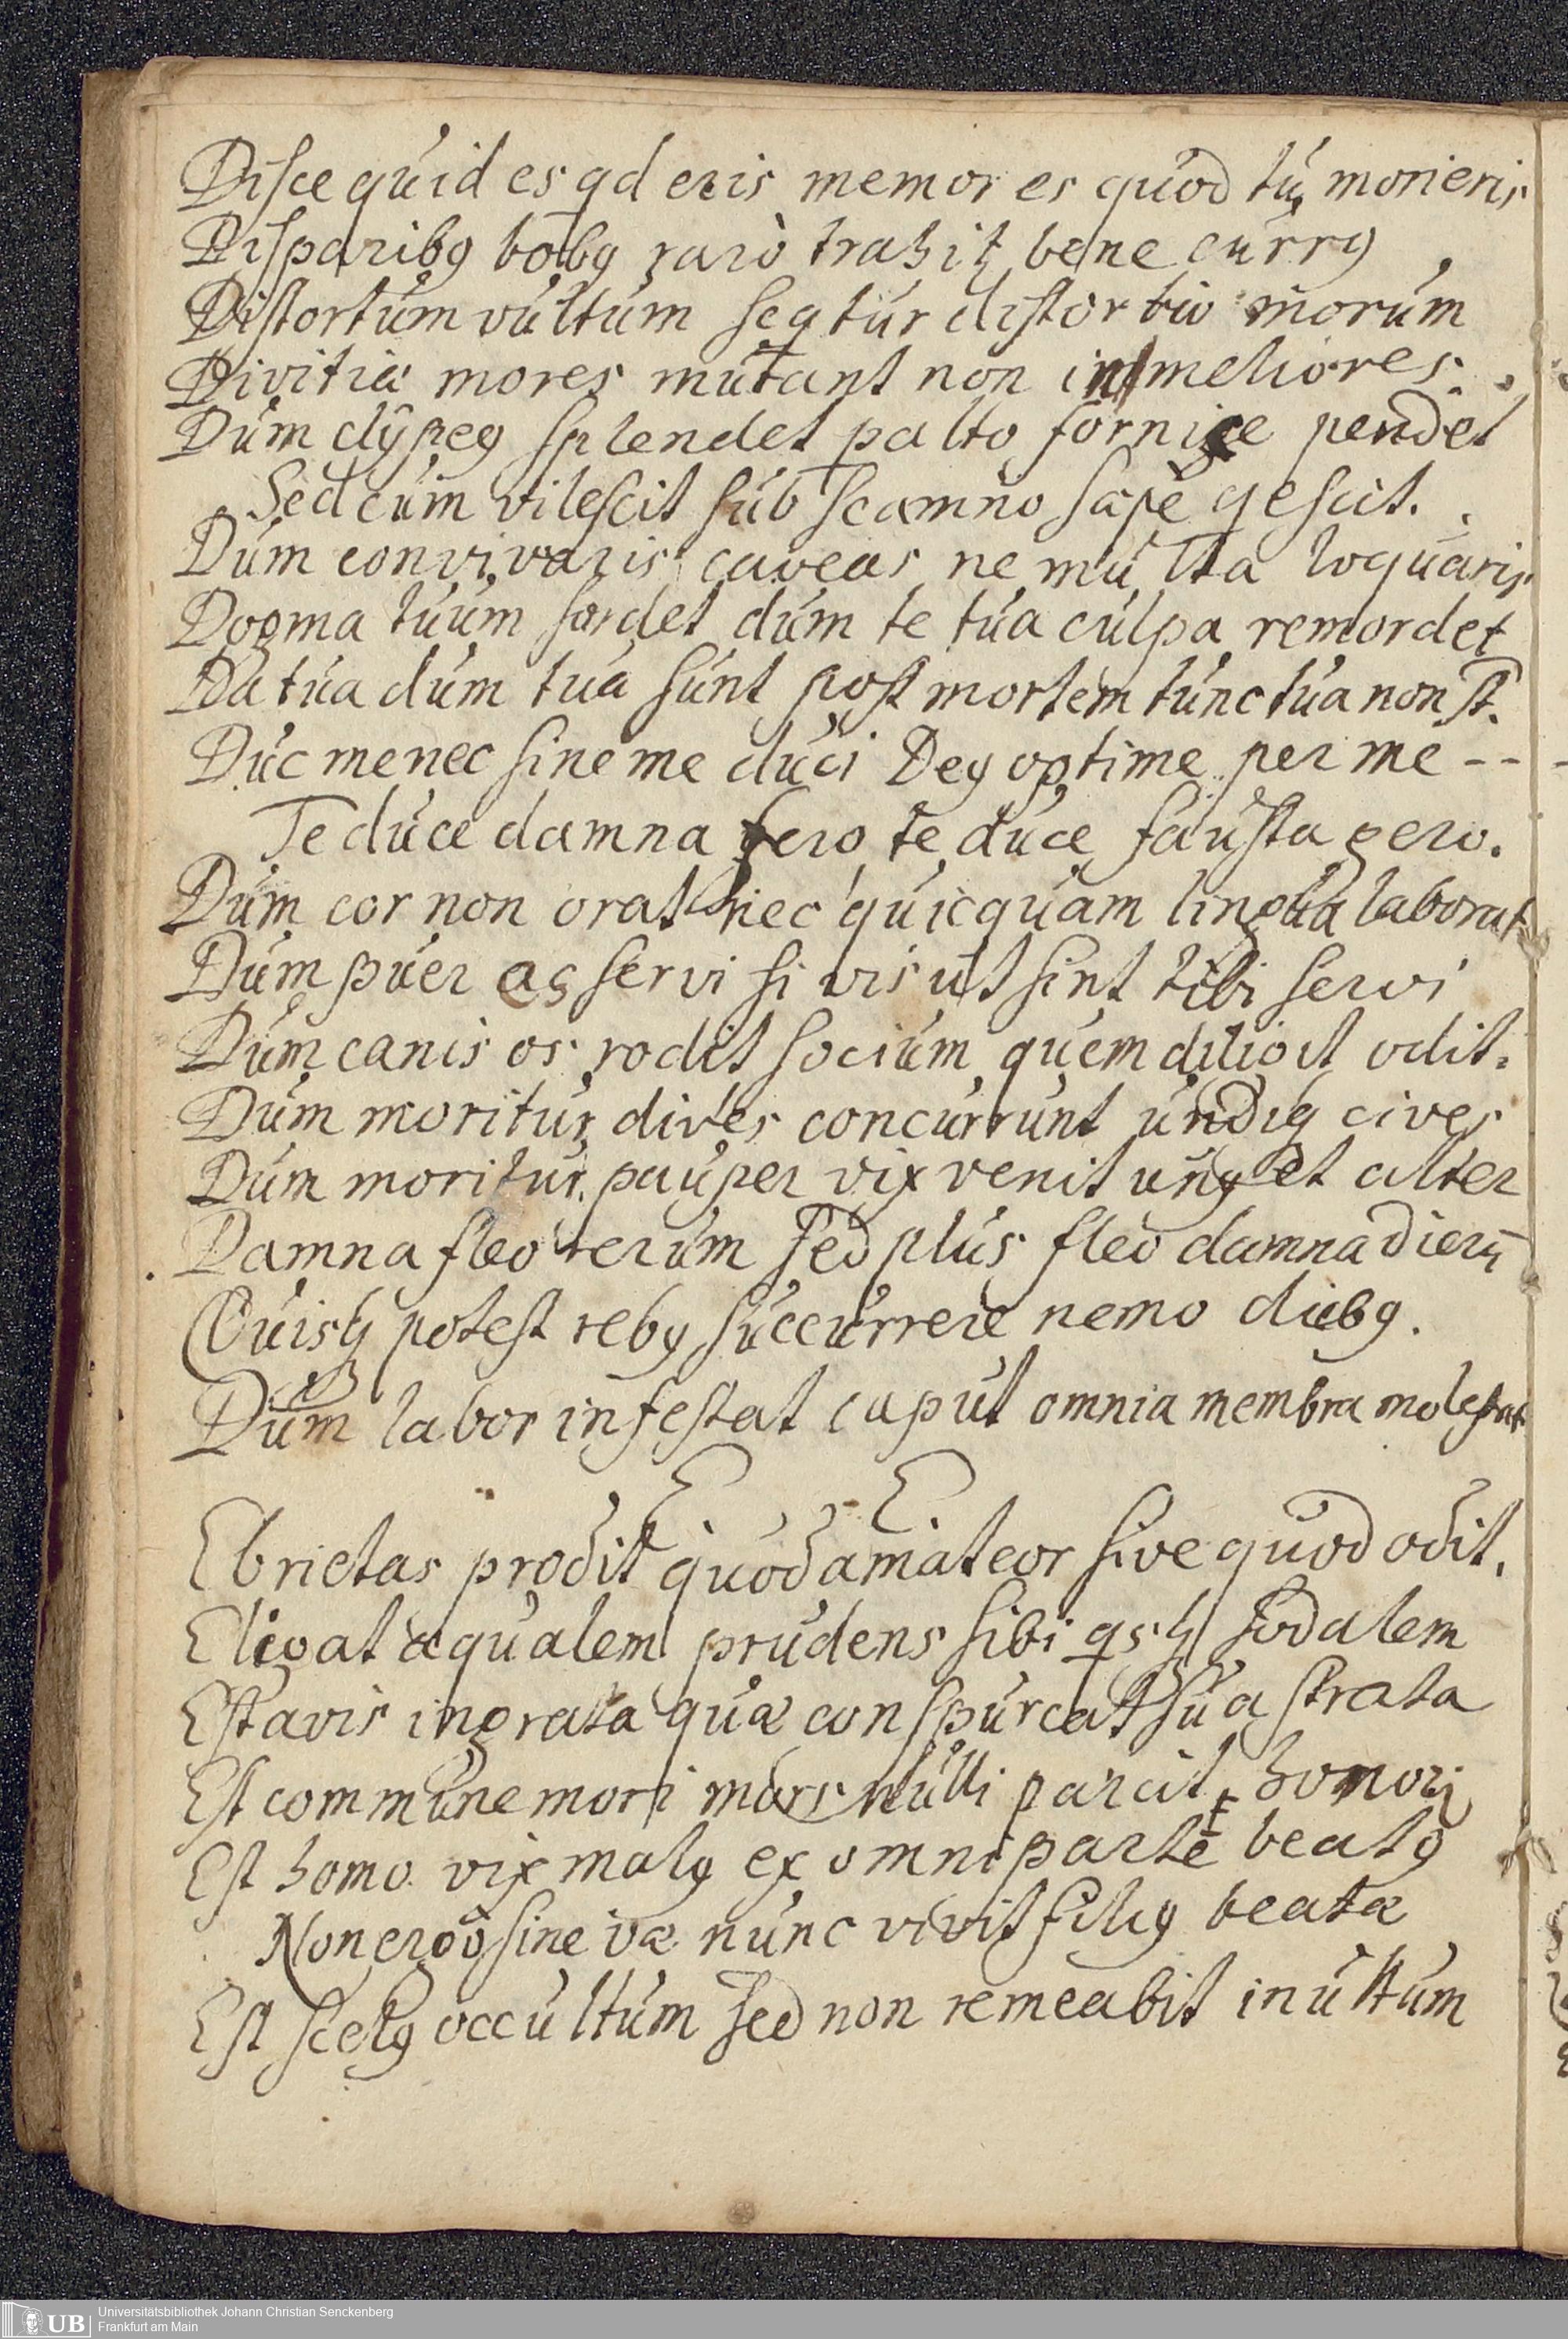 Disce quid es qd eris memor es quod tu morieris
Disparibꝰ bobꝰ rarò trahit bene currꝰ
Distortum vultum seqtur distortio morum
Divitiæ mores mutant non in meliores.
Dum clÿpeꝰ splendet palto fornice pendet
Sed cum vilescit sub scamno sæpe qescit.
Dum convivaris caveas ne multa loquaris
Dogma tuum sordet dum te tua culpa remordet
Da tua dum tua sunt post mortem tunc tua non st.
Duc me nec sine me duci Deꝰ optime per me - -
Te duce damna fero te duce fausta gero.
Dum cor non orat nec quicquam lingua laborat
Dum puer ac servi si vis ut sint tibi servi
Dum canis os rodit socium quem diligit odit.
Dum moritur dives concurrunt undiq̃ cives
Dum moritur pauper vix venit unꝰ et alter
Damna fleo rerum sed plus fleo damna dierū
Quisq̃ potest rebꝰ succurrere nemo diebꝰ.
Dum labor infestat caput omnia membra molestat
E E
Ebrietas prodit quod amat cor sive quod odit.
Eligat æqualem prudens sibi qsq̃ sodalem
Est avis ingrata quæ conspurcat sua strata
Est commune mori mors nulli parcit honori
Est homo vix malꝰ ex omni parte beatꝰ
Non ergo sine væ nunc vivit filiꝰ beatæ
Est scelꝰ occultum sed non remeabit inultum
Universitätsbibliothek Johann Christian Senckenberg
Frankfurt am Main
UB